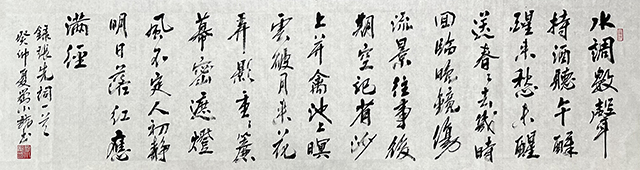 水調數聲
持酒聽午醉
醒来愁未醒
送春〻去幾時
回臨晚鏡傷
流景往事後
期空記省沙
上并禽池上暝
雲破月来花
弄影重〻簾
幕密遮燈
風不定人初靜
明日落紅應
滿徑
錄張先詞一首
癸卯夏